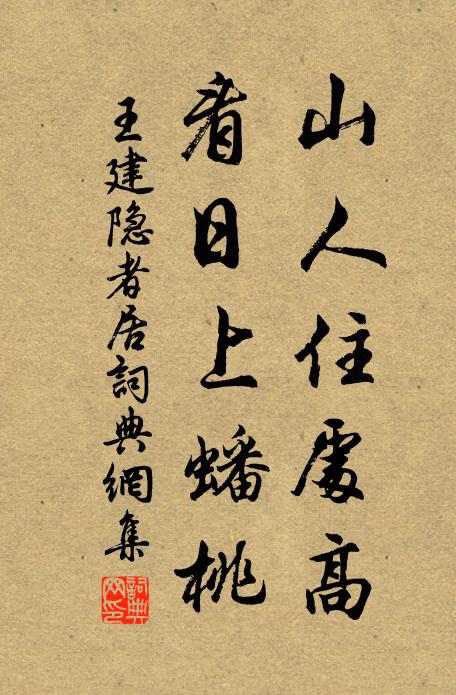 山人住處高
看日上蟠桃
王建隐者居詞典網集
詞典網印